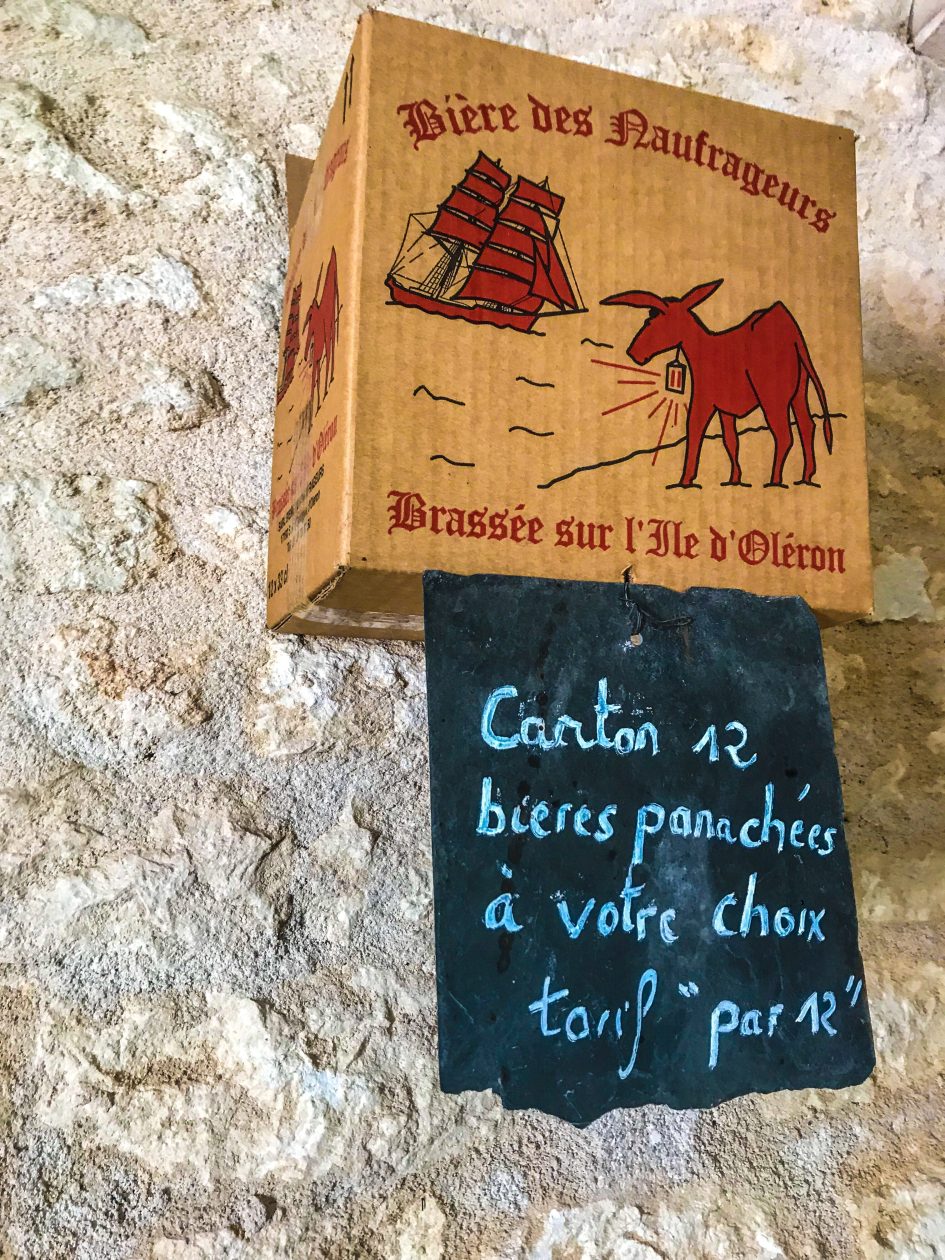 Bière des Naufrageurs
Brassée sur l'Ile d'Oléron
d'Oléron
12 x 33 cl
Carton 12
bieres panachées
à votre choix
tarif "par 12"